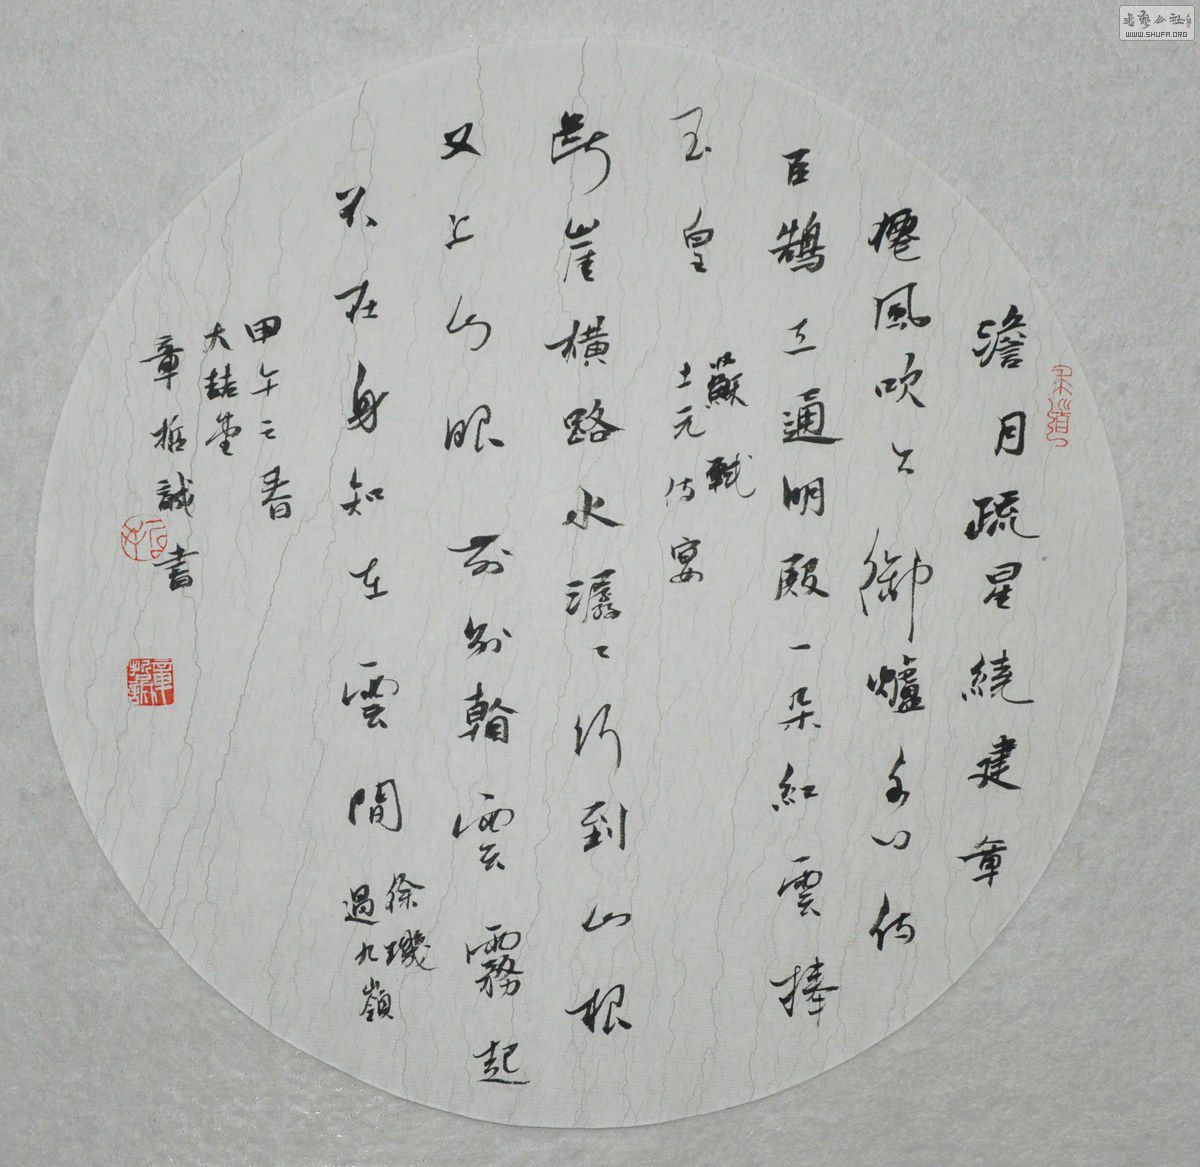 澹月疏星繞建章
僊風吹下御爐香侍
臣鵠立通明殿一朵紅雲捧
玉皇
蘇軾
上元侍宴
斷崖橫路水潺〻行到山根
又上山眼前別翰雲霧起
不在身知在雲間
徐璣
過九嶺
甲午之春
大喆堂
章哲誠書
章哲誠
书艺公社
WWW.SHUFA.ORG